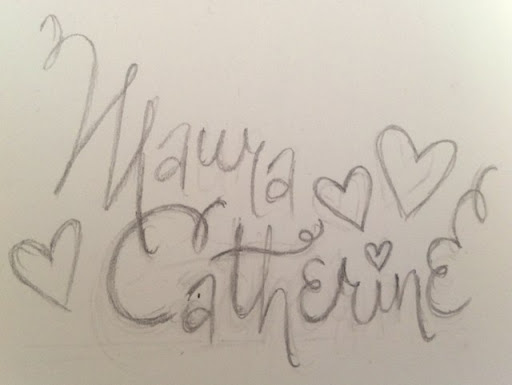 Maura
Catherine